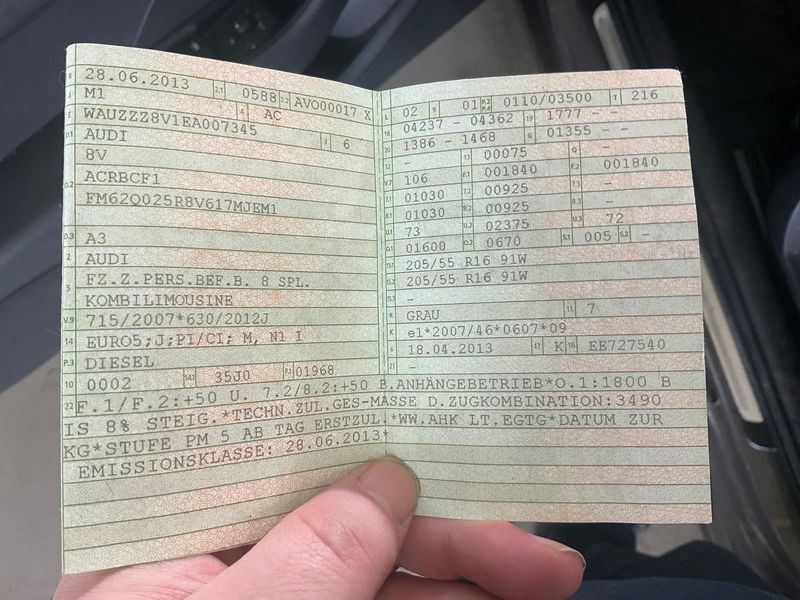 B 28.06.2013 2.1 0588 2.2 AVO00017 X
J M1 4 AC
E WAUZZZ8V1EA007345 3 6
D.1 AUDI
8V
D.2 ACRBCF1
FM62Q025R8V617MJEM1
D.3 A3
2 AUDI
5 FZ.Z.PERS.BEF.B. 8 SPL.
KOMBILIMOUSINE
V.9 715/2007*630/2012J
14 EURO5;J;PI/CI; M, N1 I
P.3 DIESEL
10 0002 14.1 35J0 P.1 01968
L 02 9 01 P.2 P.4 0110/03500 T 216
18 04237 - 04362 19 1777 - -
20 1386 - 1468 G 01355 - -
12 - 13 00075 Q -
V.7 106 F.1 001840 F.2 001840
7.1 01030 7.2 00925 7.3 -
8.1 01030 8.2 00925 8.3 -
U.1 73 U.2 02375 U.3 72
O.1 01600 O.2 0670 S.1 005 S.2 -
15.1 205/55 R16 91W
15.2 205/55 R16 91W
15.3 -
R GRAU 11 7
K e1*2007/46*0607*09
6 18.04.2013 17 K 16 EE727540
21 -
22 F.1/F.2:+50 U. 7.2/8.2:+50 B.ANHÄNGEBETRIEB*O.1:1800 B
IS 8% STEIG.*TECHN.ZUL.GES-MASSE D.ZUGKOMBINATION:3490
KG*STUFE PM 5 AB TAG ERSTZUL.*WW.AHK LT.EGTG*DATUM ZUR
EMISSIONSKLASSE: 28.06.2013*